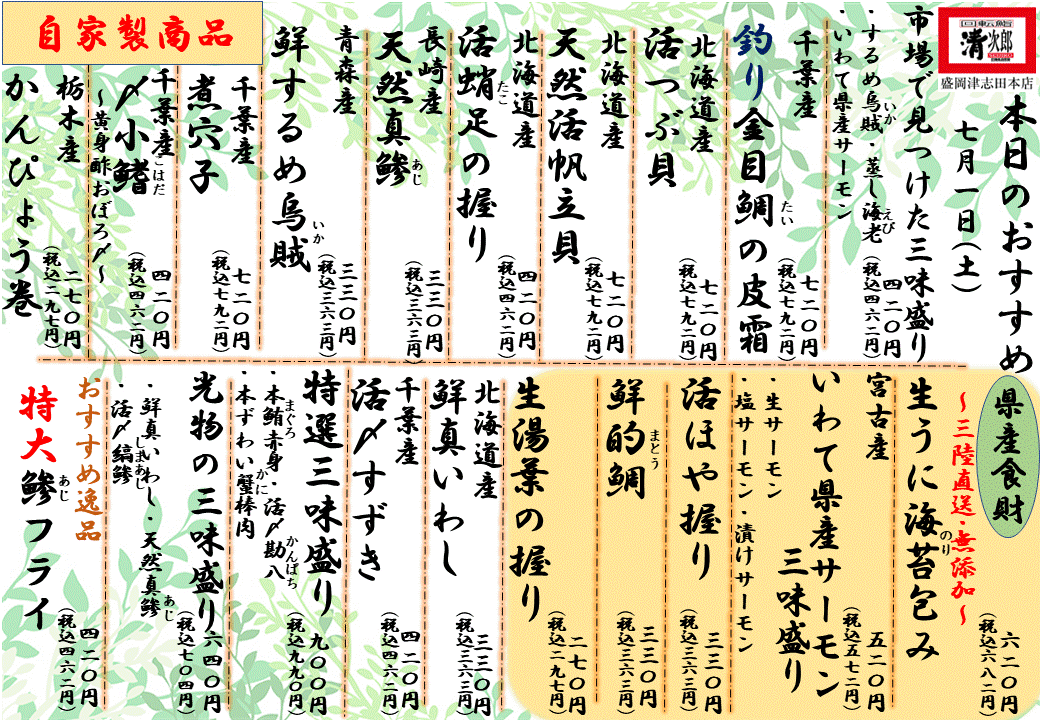 回転鮨
清次郎
盛岡津志田本店
本日のおすすめ
七月一日(土)
市場で見つけた三味盛り
・するめ烏賊・蒸し海老
いか
えび
・いわて県産サーモン
四二〇円
(税込四六二円)
千葉産
釣り金目鯛の皮霜
たい
七二〇円
(税込七九二円)
北海道産
活つぶ貝
七二〇円
(税込七九二円)
北海道産
天然活帆立貝
七二〇円
(税込七九二円)
北海道産
活蛸足の握り
たこ
四二〇円
(税込四六二円)
長崎産
天然真鯵
あじ
三三〇円
(税込三六三円)
青森産
鮮するめ烏賊
いか
三三〇円
(税込三六三円)
自家製商品
千葉産
煮穴子
七二〇円
(税込七九二円)
千葉産
〆小鰭
こはだ
～黄身酢おぼろ〆～
四二〇円
(税込四六二円)
栃木産
かんぴょう巻
二七〇円
(税込二九七円)
県産食財
～三陸直送・無添加～
生うに海苔包み
のり
六二〇円
(税込六八二円)
宮古産
いわて県産サーモン
三味盛り
・生サーモン
・塩サーモン・漬けサーモン
五二〇円
(税込五七二円)
活ほや握り
三三〇円
(税込三六三円)
鮮的鯛
まとう
三三〇円
(税込三六三円)
生湯葉の握り
二七〇円
(税込二九七円)
北海道産
鮮真いわし
三三〇円
(税込三六三円)
千葉産
活〆すずき
四二〇円
(税込四六二円)
特選三味盛り
・本鮪赤身・活〆勘八
まぐろ
かんぱち
・本ずわい蟹棒肉
かに
九〇〇円
(税込九九〇円)
光物の三味盛り
・鮮真いわし・天然真鯵
あじ
・活〆縞鯵
しまあじ
六四〇円
(税込七〇四円)
おすすめ逸品
特大鯵フライ
あじ
四二〇円
(税込四六二円)